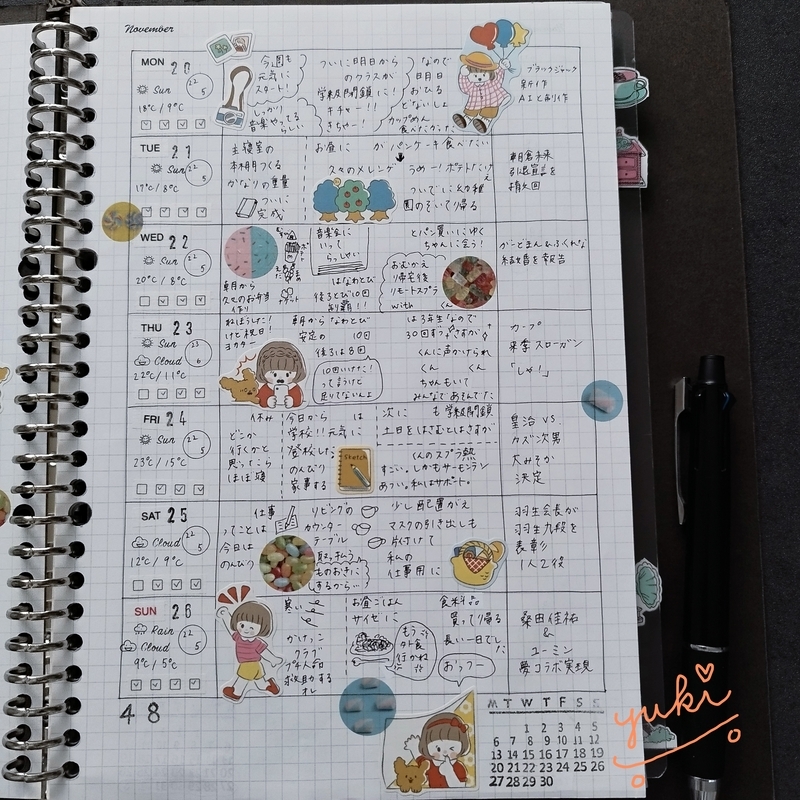 November
MON 20
Sun
22
5
18℃/9℃
今週も
元気に
スタート!
しっかり
音楽やってる
らしい
ついに明日から
のクラスが
学級閉鎖に!
キチャー!!
きちゃー!
なので
明日
おひる
どないしよ
カップめん
ブラックジャック
新作
AIと制作
TUE 21
Sun
22
5
17℃/8℃
主寝室の
本棚つくる
かなりの重量
ついに
完成
お昼に が パンケーキ食べたい
久々のメレンゲ
うめー!ポテトだけ
ついでに
のぞいて帰る
朝倉未来
引退宣言を
撤回
WED 22
Sun
22
5
20℃/8℃
朝から
久々のお弁当
作り
音楽会に
いって
らっしゃい
はなわとび
後ろとび10回
とパン買いにゆく
ちゃんに会う!
おむかえ
帰宅後
リモートスプラ
with くん
がーどまん&ふくれな
結婚を報告
THU 23
Sun
Cloud
23
6
22℃/11℃
ねぼうした!
けど祝日!
朝からなわとび
安定の 10回
後ろは8回
10回いけた!
ってうけど
足りてないよ
は3年生なので
くんに声かけられ
くん くん
ちゃんもいて
みんなであそんでた
カープ
来季スローガン
「しゃ!」
FRI 24
Sun
22
5
23℃/15℃
休み
どこか
行くかと
思ったら
ほぼ寝
今日から は
学校!!元気に
登校した
のんびり
家事する
Sketch
次に も学級閉鎖
土日をはさむとはさすが
くんのスプラ熱
すごい。しかもサーモンラン
あつい。私はサポート。
皇治 VS.
カズ次男
大みそか
決定
SAT 25
Cloud
22
5
12℃/9℃
仕事
ってことは
今日は
のんびり
リビングの
カウンター
テーブル
取っ払う
ものおきに
するから…
少し配置がえ
マスクの引き出しも
片付けて
私の
仕事用に
羽生会長が
羽生九段を
表彰
1人2役
SUN 26
Rain
Cloud
22
5
9℃/5℃
寒い
かけっこ
クラブ
救助する
オレ
お昼ごはん
サイゼに
もう
外食
行かね
食料品
買って帰る
長い一日でした
おっつー
桑田佳祐
&
ユーミン
夢コラボ実現
48
M T W T F S S
1 2 3 4 5
6 7 8 9 10 11 12
13 14 15 16 17 18 19
20 21 22 23 24 25 26
27 28 29 30
yuki